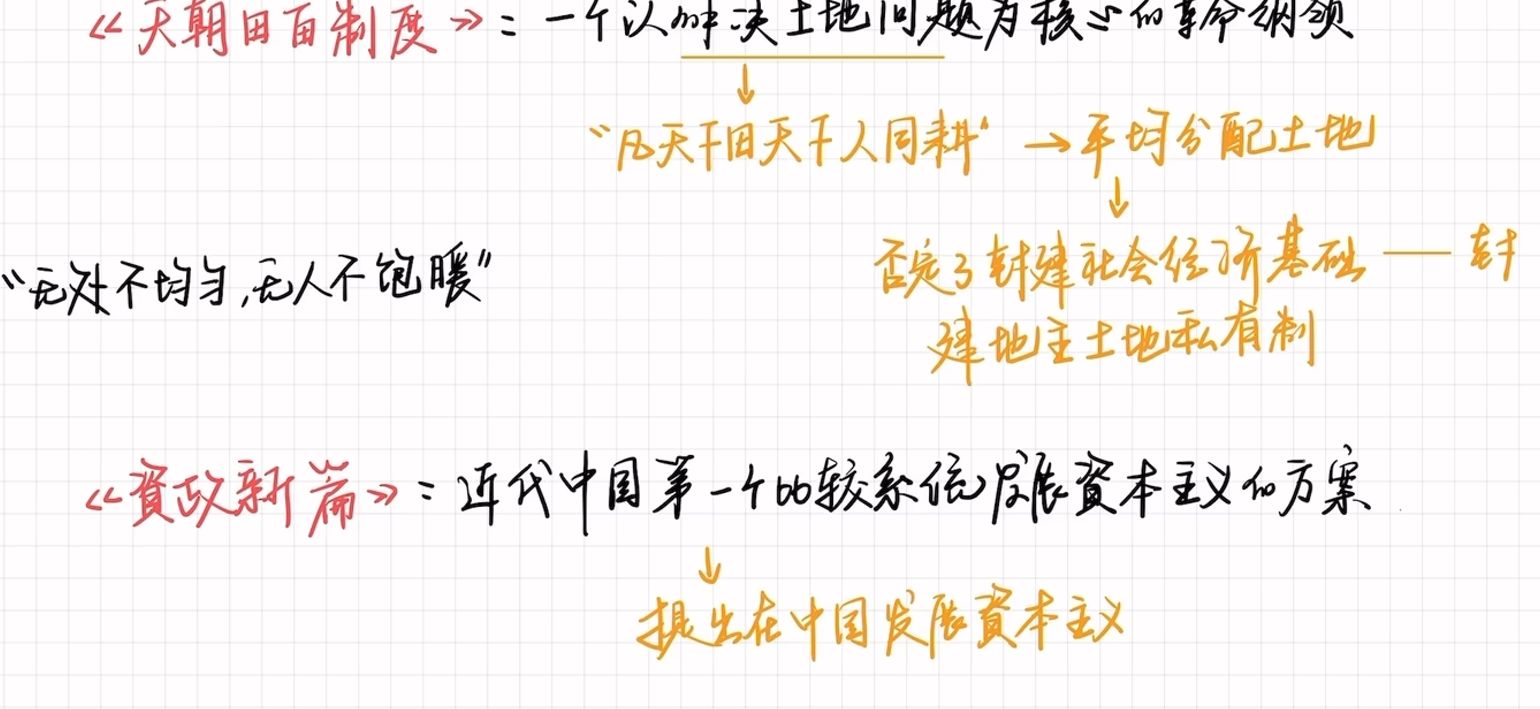 《天朝田亩制度》：一个以解决土地问题为核心的革命纲领
“凡天下田天下人同耕” → 平均分配土地
“无处不均匀，无人不饱暖”
否定了封建社会经济基础 —— 封
建地主土地私有制
《资政新篇》：近代中国第一个比较系统发展资本主义的方案
提出在中国发展资本主义